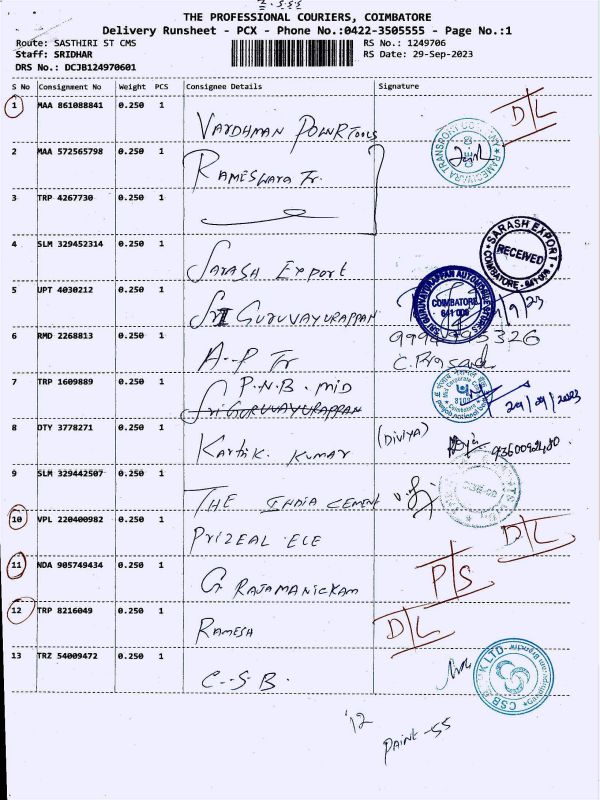 THE PROFESSIONAL COURIERS, COIMBATORE
Delivery Runsheet - PCX - Phone No.:0422-3505555 - Page No.:1
Route: SASTHIRI ST CMS RS No.: 1249706
Staff: SRIDHAR RS Date: 29-Sep-2023
DRS No.: DCJB124970601
S No Consignment No Weight PCS Consignee Details Signature
1 MAA 861088841 0.250 1 VARDHMAN POWR TOOLS D/L
2 MAA 572565798 0.250 1 RAMESWARA Tr.
RAMESWARA TRANSPORT COMPANY
3 TRP 4267730 0.250 1
4 SLM 329452314 0.250 1 SARASH Export
SARASH EXPORT RECEIVED COIMBATORE - 641 006
5 UPT 4030212 0.250 1 Sri GURUVAYURAPPAN
SRI GURUVAYURAPPAN AUTOMOBILE STORES COIMBATORE 641 006
6 RMD 2268813 0.250 1 A--P Tr C. Prasad
7 TRP 1609889 0.250 1 P.N.B. MID
Sri GURUVAYURAPPAN 29/09/2023
8 DTY 3778271 0.250 1 Karthik. KUMAR (DIVIYA)
9 SLM 329442507 0.250 1 THE INDIA CEMENT
10 VPL 220400982 0.250 1 PRIZEAL ELE D/L
11 NDA 905749434 0.250 1 G RAJAMANICKAM P/S
12 TRP 8216049 0.250 1 RAMESH D/L
13 TRZ 54009472 0.250 1 C--S B.
CSB BANK LTD
'12
PAINT-55